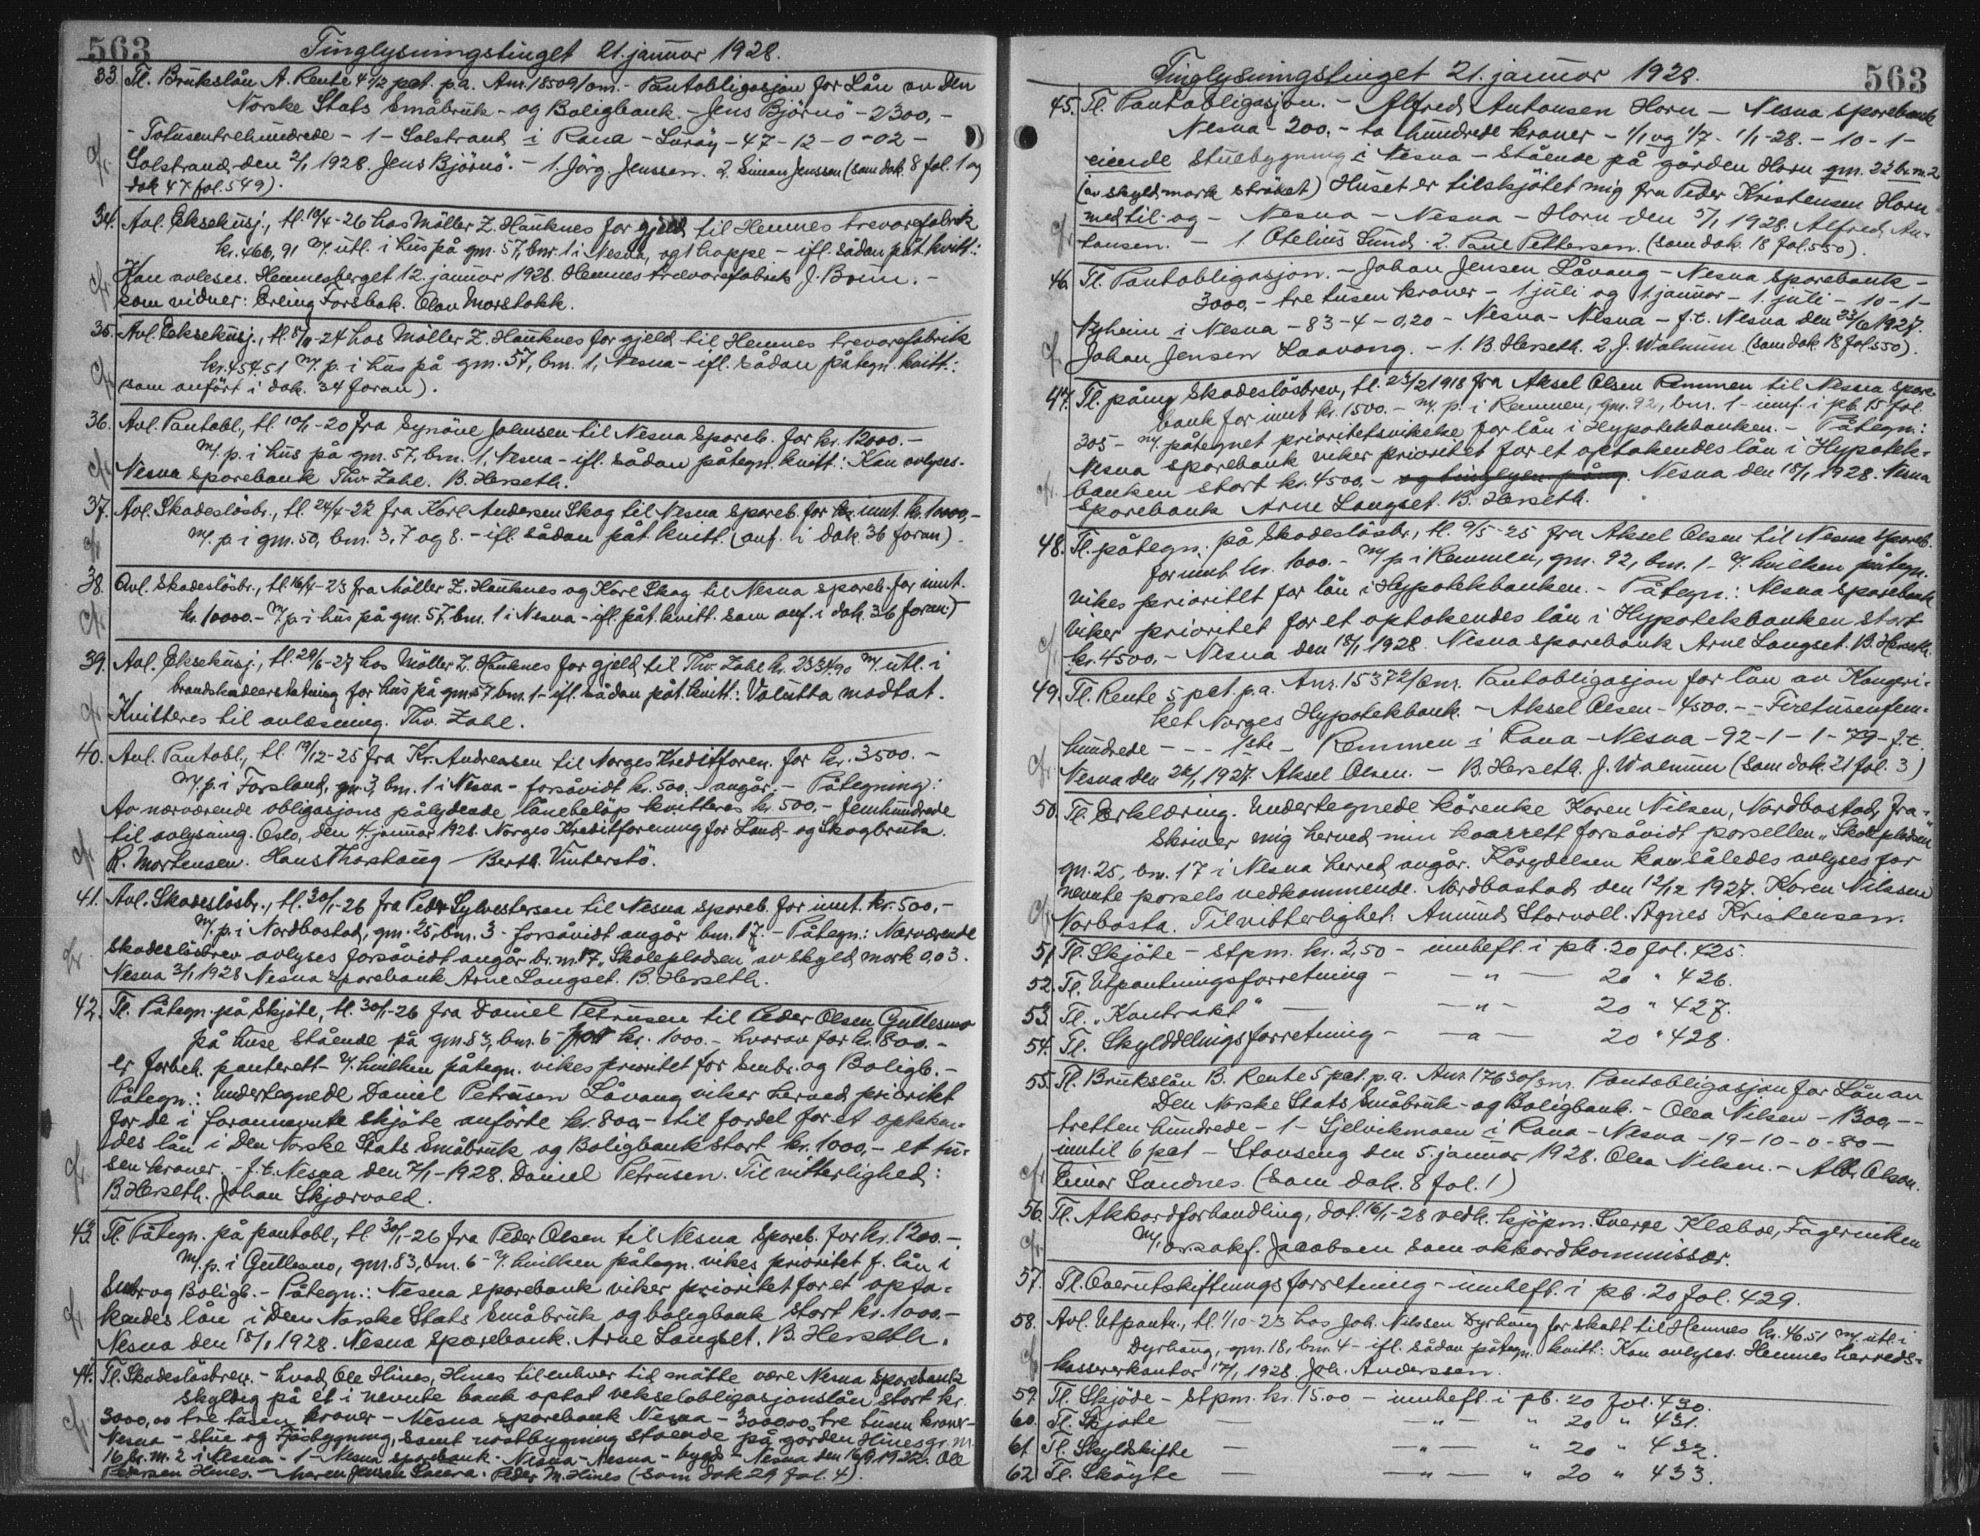 563
Tinglysningstinget 21. januar 1928.
33. Tl. Brukslån A. Rente 4 1/2 pct. p.a. Anr. 18509/om. - Pantobligasjon for Lån av Den
Norske Stats Småbruk- og Boligbank. - Jens Björnö - 2300,-
- Totusentrehundrede - 1 - Solstrand i Rana - Lurøy - 47-12-0-02 -
Solstrand den 2/1 1928. Jens Björnö. - 1. Jörg. Jenssen. 2. Simon Jenssen (som dok. 8 fol. 1 og
dok 47 fol. 549).
34. Avl. Eksekusj., tl. 19/4-26 hos Möller Z. Hauknes for gjeld til Hemnes trevarefabrik
kr. 466,91 m/. utl. i hus på gnr. 57, bnr. 1 i Nesna, og 1 hoppe. - ifl. sådan påt. kvitt.:
Kan avleses. Hemnesberget 12. januar 1928. Hemnes trevarefabrik J. Boen. -
Som vidner: Erling Forsbak. Olav Marstokk.
35. Avl. Eksekusj., tl. 8/11-24 hos Möller Z. Hauknes for gjeld til Hemnes trevarefabrik
kr. 454.51 m/. p. i hus på gnr. 57, bnr. 1, Nesna - ifl. sådan påtegn. kvitt.:
(som anfört i dok. 34 foran).
36. Avl. Pantobl., tl. 10/1-20 fra Synöve Johnsen til Nesna Spareb. for kr. 12000.-
m/. p. i hus på gnr. 57, bnr. 1, Nesna - ifl. sådan påtegn. kvitt.: Kan avlyses.
Nesna sparebank Thv. Zahl. B. Herseth.
37. Avl. Skadeslösbr., tl. 24/4-22 fra Karl Andersen Skog til Nesna spareb. for innt. kr. 1000,-
m/. p. i gnr. 50, bnr. 3, 7 og 8. - ifl. sådan påt. kvitt. (anf. i dok. 36 foran).
38. Avl. Skadeslösbr., tl. 16/4-23 fra Möller Z. Hauknes og Karl Skog til Nesna spareb. for innt.
kr. 10000.- m/. p. i hus på gnr. 57, bnr. 1 i Nesna - ifl. påt. kvitt. som anf. i dok. 36 foran)
39. Avl. Eksekusj., tl. 29/6-27 hos Möller Z. Hauknes for gjeld til Thv. Zahl kr. 2334.90 m/. utl. i
brandskadeerstatning for hus på gnr. 57, bnr. 1 - ifl. sådan påt. kvitt.: Valutta modtat.
Kvitteres til avlæsning. Thv. Zahl.
40. Avl. Pantobl., tl. 19/12-25 fra Kr. Andreasen til Norges Kreditforen. for kr. 3500.-
m/. p. i Forsland, gnr. 3, bnr. 1 i Nesna - forsåvidt kr. 500,- angår. - Påtegning:
Av nærværende obligasjons pålydende lånebelöp kvitteres kr. 500,- femhundrede
til avlysning. Oslo, den 4. januar 1928. Norges Kreditforening for Land- og Skogbruk.
R. Mortensen. Hans Thorshaug Berth. Vinterstö.
41. Avl. Skadeslösbr., tl. 30/1-26 fra Peder Sylvestersen til Nesna spareb. for innt. kr. 500,-
m/. p. i Nordbostad, gnr. 25, bnr. 3 - forsåvidt angår bnr. 17. - Påtegn.: Nærværende
skadeslösbrev avlyses forsåvidt angår br. nr. 17, Skolepladsen av skyld mark 0,03.
Nesna 3/1 1928 Nesna sparebank Arne Langset. B. Herseth.
42. Tl. Påtegn. på Skjöte, tl. 30/1-26 fra Daniel Petrusen til Peder Olsen Gullesmo
på huse stående på gnr. 83, bnr. 6 for kr. 1000.- hvorav for kr. 800.-
er forbeh. panterett - v/. hvilken påtegn. vikes prioritet for Smbr. og Boligb. -
Påtegn.: Undertegnede Daniel Petrusen Låvang viker herved prioritet
for de i forannevnte skjöte anförte kr. 800,- til fordel for et optaken-
des lån i Den Norske Stats Småbruk og Boligbank stort kr. 1000,- et tu-
sen kroner. - f.t. Nesna den 7/1-1928. Daniel Petrusen. Til vitterlighed:
B. Herseth. Johan Skjærvold.
43. Tl. Påtegn. på pantobl., tl. 30/1-26 fra Peder Olsen til Nesna spareb. for kr. 1200.-
m/. p. i Gullesmo, gnr. 83, bnr. 6 - v/. hvilken påtegn. vikes prioritet f. lån i
Smbr. og Boligb. - Påtegn.: Nesna sparebank viker prioritet for et opta-
kendes lån i Den Norske Stats Småbruk og boligbank stort kr. 1000.-
Nesna den 15/1 1928. Nesna sparebank. Arne Langset. B. Herseth.
44. Tl. Skadeslösbrev. - hvad Ole Hines, Hines til enhver tid måtte være Nesna Sparebank
skyldig på et i nevnte bank optat vekselobligasjonslån stort kr.
3000,00 tre tusen kroner - Nesna sparebank Nesna - 3000,00 tre tusen kroner -
Nesna - stue og Fjösbygning, samt nöstbygning stående på gården Hines gr. nr.
16 br. nr. 2 i Nesna - 1 - Nesna sparebank. Nesna - Nesna - bygd - Nesna den Ole
Pedersen Hines. - Peder M. Hines (som dok 29 fol. 4).
563
Tinglysningstinget 21. januar 1928.
45. Tl. Pantobligasjon. - Alfred Antonsen Horn - Nesna sparebank
Nesna - 200,- to hundrede kroner - 1/1 og 1/7 - 1/1-28. - 10 - 1 -
eiende stuebygning i Nesna - stående på gården Horn gnr. 22 br. nr. 2
(av skyld mark ströket) Huset er tilskjötet mig fra Peder Kristensen Horn
med til og - Nesna - Nesna - Horn den 5/1 1928. Alfred An-
tonsen. - 1 Otelius Sund. 2. Paul Pettersen. (som dok. 18 fol. 550).
46. Tl. Pantobligasjon. - Johan Jensen Låvang - Nesna sparebank -
3000,- tre tusen kroner - 1 juli og 1. januar - 1. juli - 10 - 1 -
Nyheim i Nesna - 83-4-0,20 - Nesna - Nesna - f.t. Nesna den 23/6 1927.
Johan Jensen Laavang. - 1. B. Herseth. 2. J. Walnum (som dok. 18 fol. 550).
47. Tl. påtng Skadeslösbrev, tl. 23/2 1918 fra Aksel Olsen Remmen til Nesna spare-
bank for innt kr. 1500.- m/. p. i Remmen, gnr. 92, bnr. 1 - innf. i pb. 15 fol.
305 - m/. påtegnet prioritetsvikelse for lån i Hypotekbanken. - Påtegn.:
Nesna sparebank viker prioritet for et optakendes lån i Hypotek-
banken stort kr. 4500,- Nesna den 18/1 1928. Nesna
sparebank Arne Langset. B. Herseth.
48. Tl. påtegn. på Skadeslösbr., tl. 9/5-25 fra Aksel Olsen til Nesna spareb.
for innt. kr. 1000.- m/. p. i Remmen, gnr. 92, bnr. 1 - v/. hvilken påtegn.
vikes prioritet for lån i Hypotekbanken. - Påtegn.: Nesna sparebank
viker prioritet for et optakendes lån i Hypotekbanken stort
kr. 4500,- Nesna den 18/1 1928. Nesna sparebank Arne Langset. B. Herseth.
49. Tl. Rente 5 pct. p.a. Anr. 15372/Bnr. Pantobligasjon for lån av Kongeri-
ket Norges Hypotekbank. - Aksel Olsen - 4500.- - Firetusenfem-
hundrede - - - 1ste - Remmen i Rana - Nesna - 92-1-1-79 - f.t.
Nesna den 1927. Aksel Olsen. - B. Herseth. J. Walnum (som dok. 21 fol. 3)
50. Tl. Erklæring. Undertegnede kårenke Karen Nilsen, Nordbostad, fra-
skriver mig herved min kaarrett forsåvidt parsellen "Skolepladsen"
gn. 25, bnr. 17 i Nesna herred angår. Kårydelsen kan således avlyses for
nevnte parsels vedkommende. Nordbostad den 12/12 1927. Karen Nilssen
Norbosta. Til vitterlighet: Amund Storvoll. Agnes Kristensen.
51 Tl. Skjöte - stpm. kr. 2,50 - innheft. i pb. 20 fol. 425.
52. Tl. Utpantningsforretning - — " — 20 " 426.
53. Tl. "Kontrakt" — — " — 20 " 427.
54. Tl. Skylddelingsforretning - — " — 20 " 428.
55. Tl. Brukslån B. Rente 5 pct. p.a. Anr. 17630/Bnr. Pantobligasjon for Lån av
Den Norske Stats Småbruk- og Boligbank. - Olea Nilsen - 1300,- -
tretten hundrede - 1 - Sjelvikmoen i Rana - Nesna - 19-10-0-80 -
inntil 6 pct - Stavseng den 5. januar 1928. Olea Nilsen. - Alb. Olsen.
Einar Sandnes. (som dok. 8 fol. 1)
56. Tl. Akkordforhandling, dat. 16/1-28 vedk. kjöpm. Sverre Klæboe, Fagerviken
m/. orsakf. Jacobsen som akkordkommissær.
57. Tl. Overutskiftningsforretning - innheft. i pb. 20 fol. 429.
58. Avl. Utpantn., tl. 1/10-23 hos Joh. Nilssen Dyrhaug for skatt til Hemnes kr. 46.51 m/. utl. i
Dyrhaug, gnr. 18, bnr. 4 - ifl. sådan påtegn. kvitt: Kan avlyses. Hemnes herreds-
kassererkontor 17/1 1928. Joh. Anderssen.
59. Tl. Skjöde - stpm. kr. 15.00 - innheft i pb. 20 fol. 430.
60. Tl. Skjöte — — " — " 20 " 431.
61. Tl. Skyldskifte — — " — " 20 " 432.
62 Tl. Sköyte — — " — " 20 " 433.